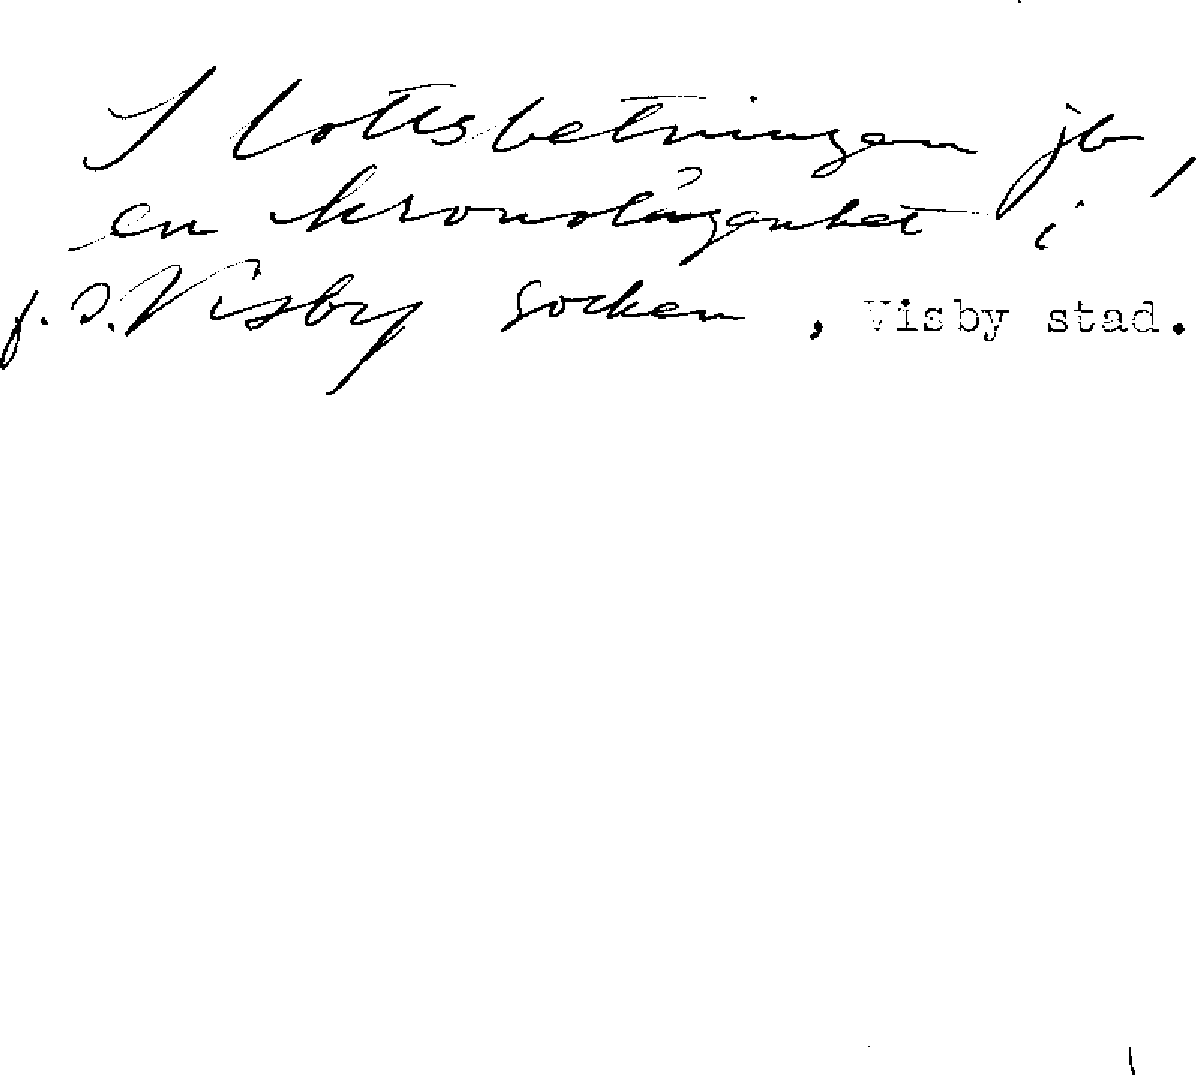 I lottsbetningen jb,
en kronolägenhet i
f.d. Visby socken, Visby stad.